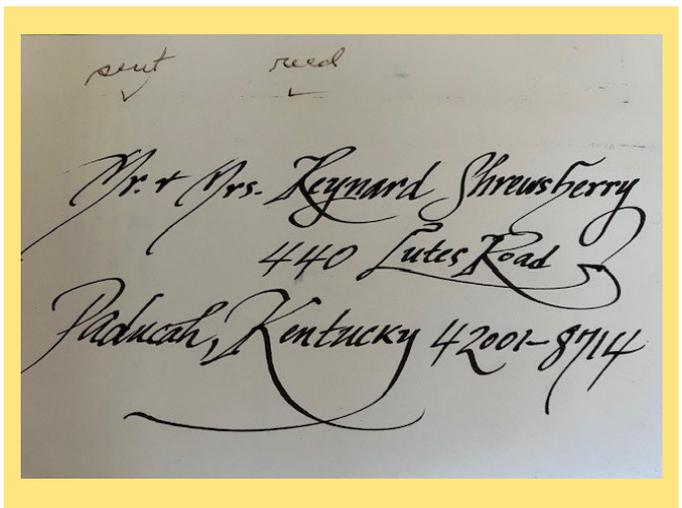 sent recd
Mr. & Mrs. Reynard Shrewsberry
440 Lutes Road
Paducah, Kentucky 42001-8714